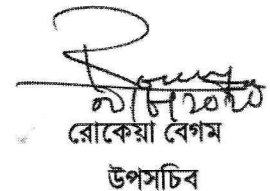 রোকেয়া বেগম
উপসচিব